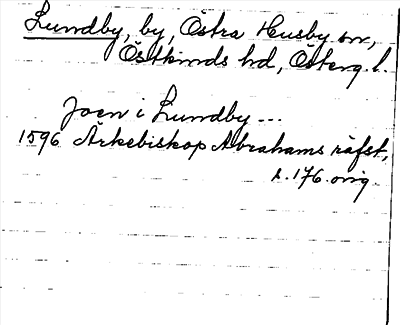 Lundby, by, Östra Husby sn,
Östkinds hd, Österg. l.
Joen i Lundby ---
1596 Ärkebiskop Abrahams räfst,
s. 176. orig.